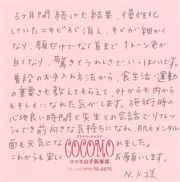 3ヶ月間続けた結果、慢性化し
ていたニキビが消え、キメが細かく
なり、顔だけでなく首まで1トーン色が
白くなり、驚きとうれしさでいっぱいです。
普段のお手入れ方法から、食生活、運動
の重要さも教えてもらして、外からも内から
もキレイになれた気がします。施術時の
心地良い時間で先生との会話でリフレッ
シュでき前向きな気持ちになれ、肌もメンタル
面も元気になられました。
これからも宜しくお願いします。
N.K様
プライベートエステ
COCOMO
ココモ白子倶楽部
75-6875